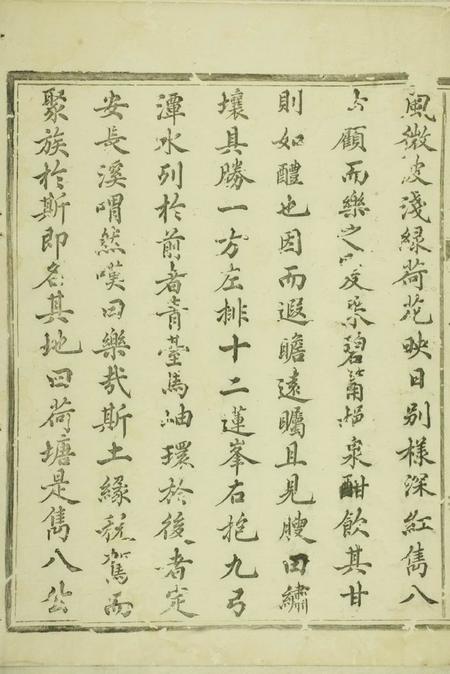 風微波淺綠荷花映日別樣深紅雋八
公顧而樂之爰采碧筩挹泉酣飲其甘
則如醴也因而遐瞻遠矚且見腴田繡
壤具勝一方左排十二蓮峯右抱九弓
潭水列於前者青臺馬岫環於後者定
安長溪喟然嘆曰樂哉斯土緣稅駕而
聚族於斯即名其地曰荷塘是雋八公